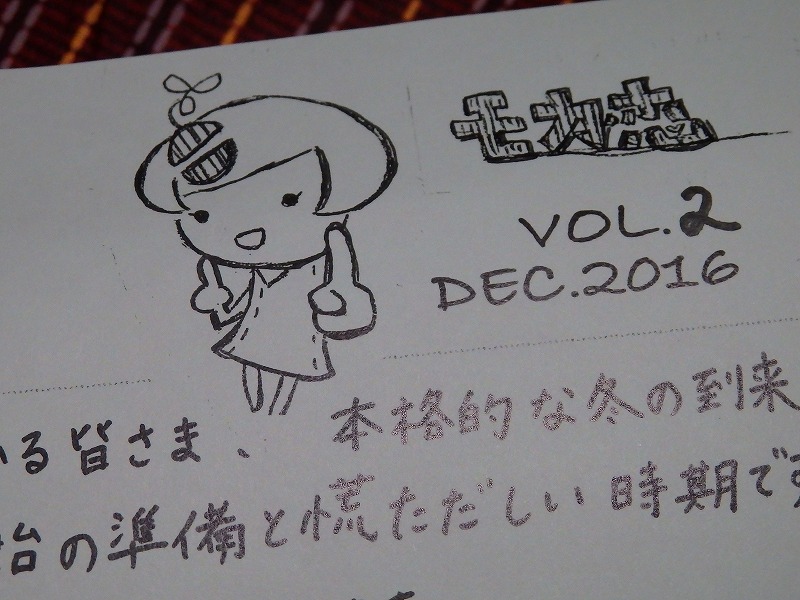 モカ恋
VOL.2
DEC.2016
いる皆さま、本格的な冬の到来
始の準備と慌ただしい時期です